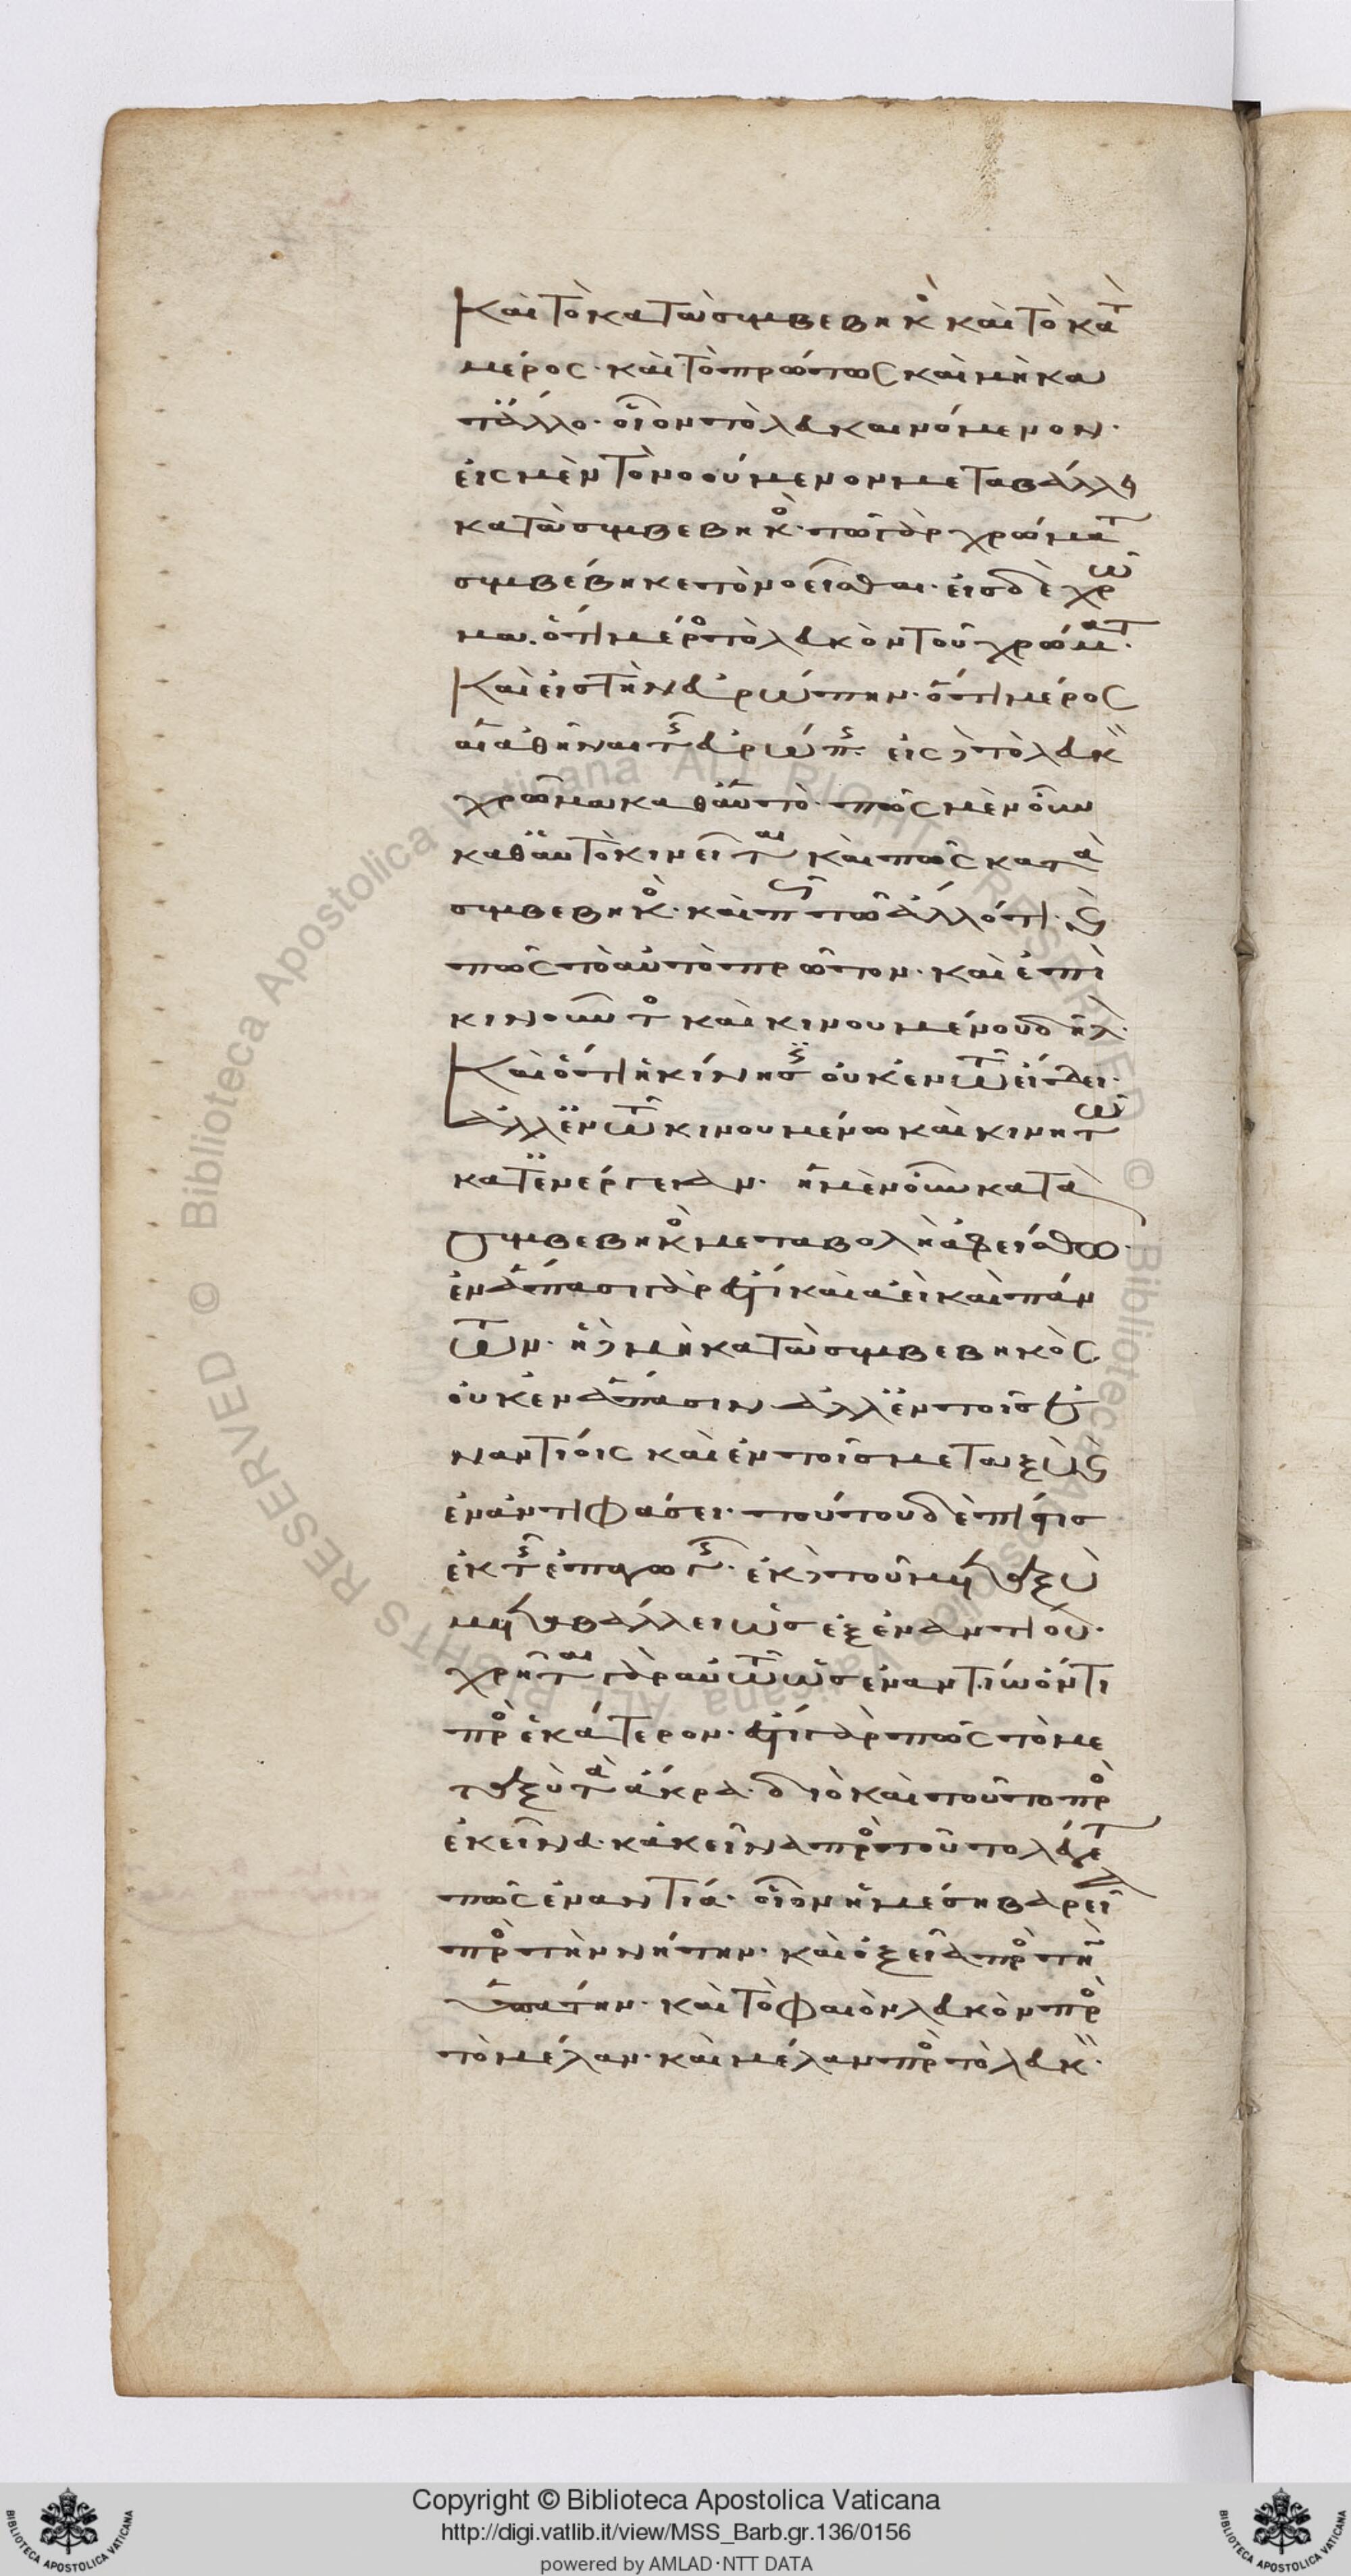 Καὶ τὸ κατὰ συμβεβηκὸ καὶ τὸ κατ
μέρος· καὶ τὸ πρώτως καὶ μὴ κα
τ' ἄλλο· οἷον τὸ λευκαινόμενον·
εἰς μὲν τὸ νοούμενον μεταβάλλει
κατὰ συμβεβηκὸ· τῶ γὰρ χρώματ
συμβέβηκε τὸ νοεῖσθαι· εἰς δὲ χρῶ
μα. ὅτι μέρο τὸ λευκὸν τοῦ χρώματ·
Καὶ εἰς τὴν εὐρώπην· ὅτι μέρος
αἱ ἀθῆναι τῆς εὐρώπης· εἰς δὲ τὸ λευκὸν
χρῶμα καθ' αὑτὸ· πῶς μὲν οὖν
καθ' αὑτὸ κινεῖται καὶ πῶς κατὰ
συμβεβηκὸ· καὶ πῶς τῶ ἄλλό τι· καὶ
πῶς τὸ αὐτὸ πρῶτον· καὶ ἐπὶ
κινοῦντο καὶ κινουμένου δῆλ·
Καὶ ὅτι ἡ κίνησις οὐκ ἐν τῶ εἴδει·
ἀλλ' ἐν τῶ κινουμένω καὶ κινητῶ
κατ' ἐνέργειαν· ἡ μὲν οὖν κατὰ
συμβεβηκὸ μεταβολὴ ἀφείσθω·
ἐν ἅπασι γάρ ἐστι καὶ ἀεὶ καὶ πάν
των· ἡ δὲ μὴ κατὰ συμβεβηκὸς
οὐκ ἐν ἅπασιν ἀλλ' ἐν τοῖς ἐ
ναντίοις καὶ ἐν τοῖς μεταξὺ καὶ
ἐν ἀντιφάσει· τούτου δὲ πίστις
ἐκ τῆς ἐπαγωγῆς· ἐκ δὲ τοῦ μεταξὺ
μεταβάλλει ὡς ἐξ ἐναντίου·
χρῆται γὰρ αὐτῶ ὡς ἐναντίω ὄντι
πρὸ ἑκάτερον· ἔστι γάρ πως τὸ με
ταξὺ τὰ ἄκρα· διὸ καὶ τοῦτο πρὸ
ἐκεῖνα· κἀκεῖνα πρὸ τοῦτο λέγετ
πως ἐναντία· οἷον ἡ μέση βαρεῖα
πρὸ τὴν νήτην· καὶ ὀξεῖα πρὸ τὴν
ὑπάτην· καὶ τὸ φαιὸν λευκὸν πρὸ
τὸ μέλαν· καὶ μέλαν πρὸ τὸ λευκὸν·
Copyright © Biblioteca Apostolica Vaticana
http://digi.vatlib.it/view/MSS_Barb.gr.136/0156
powered by AMLAD·NTT DATA